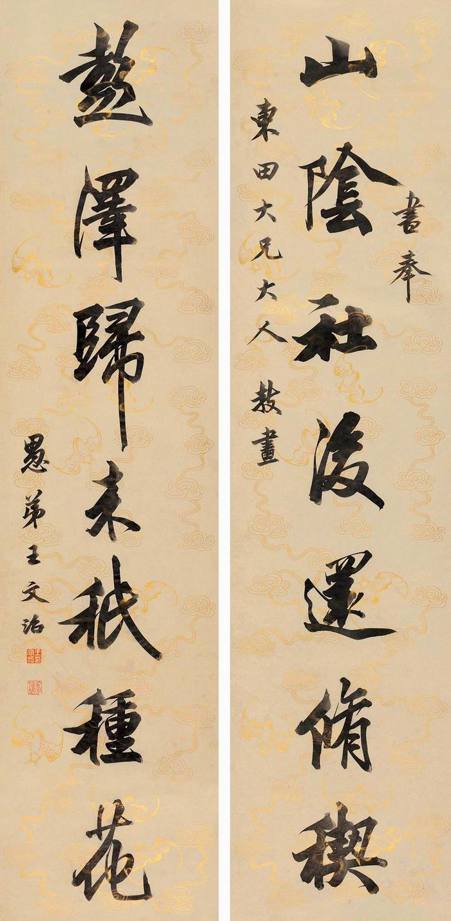 書奉
山陰社後還脩稧
東田大兄大人教畫
彭澤歸来秖種花
愚弟王文治